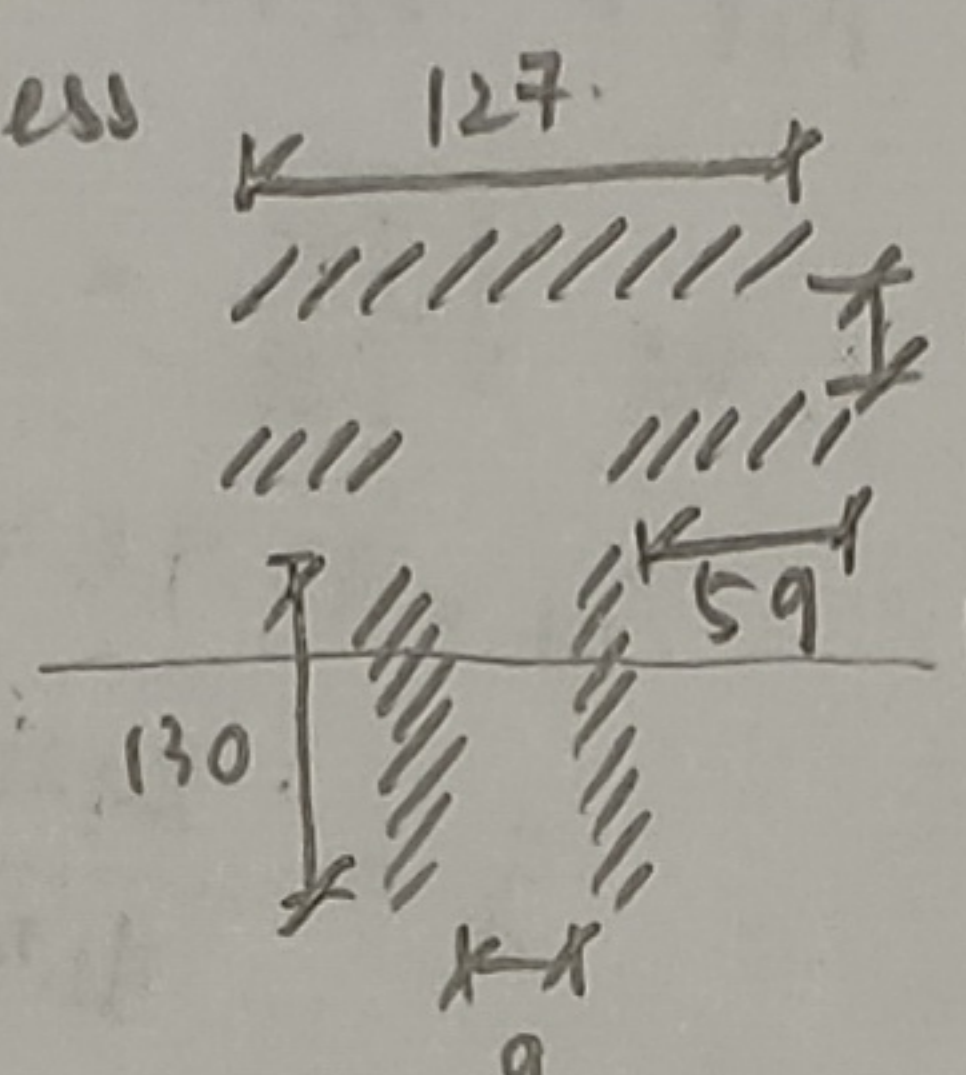 ess
127.
59
130
9